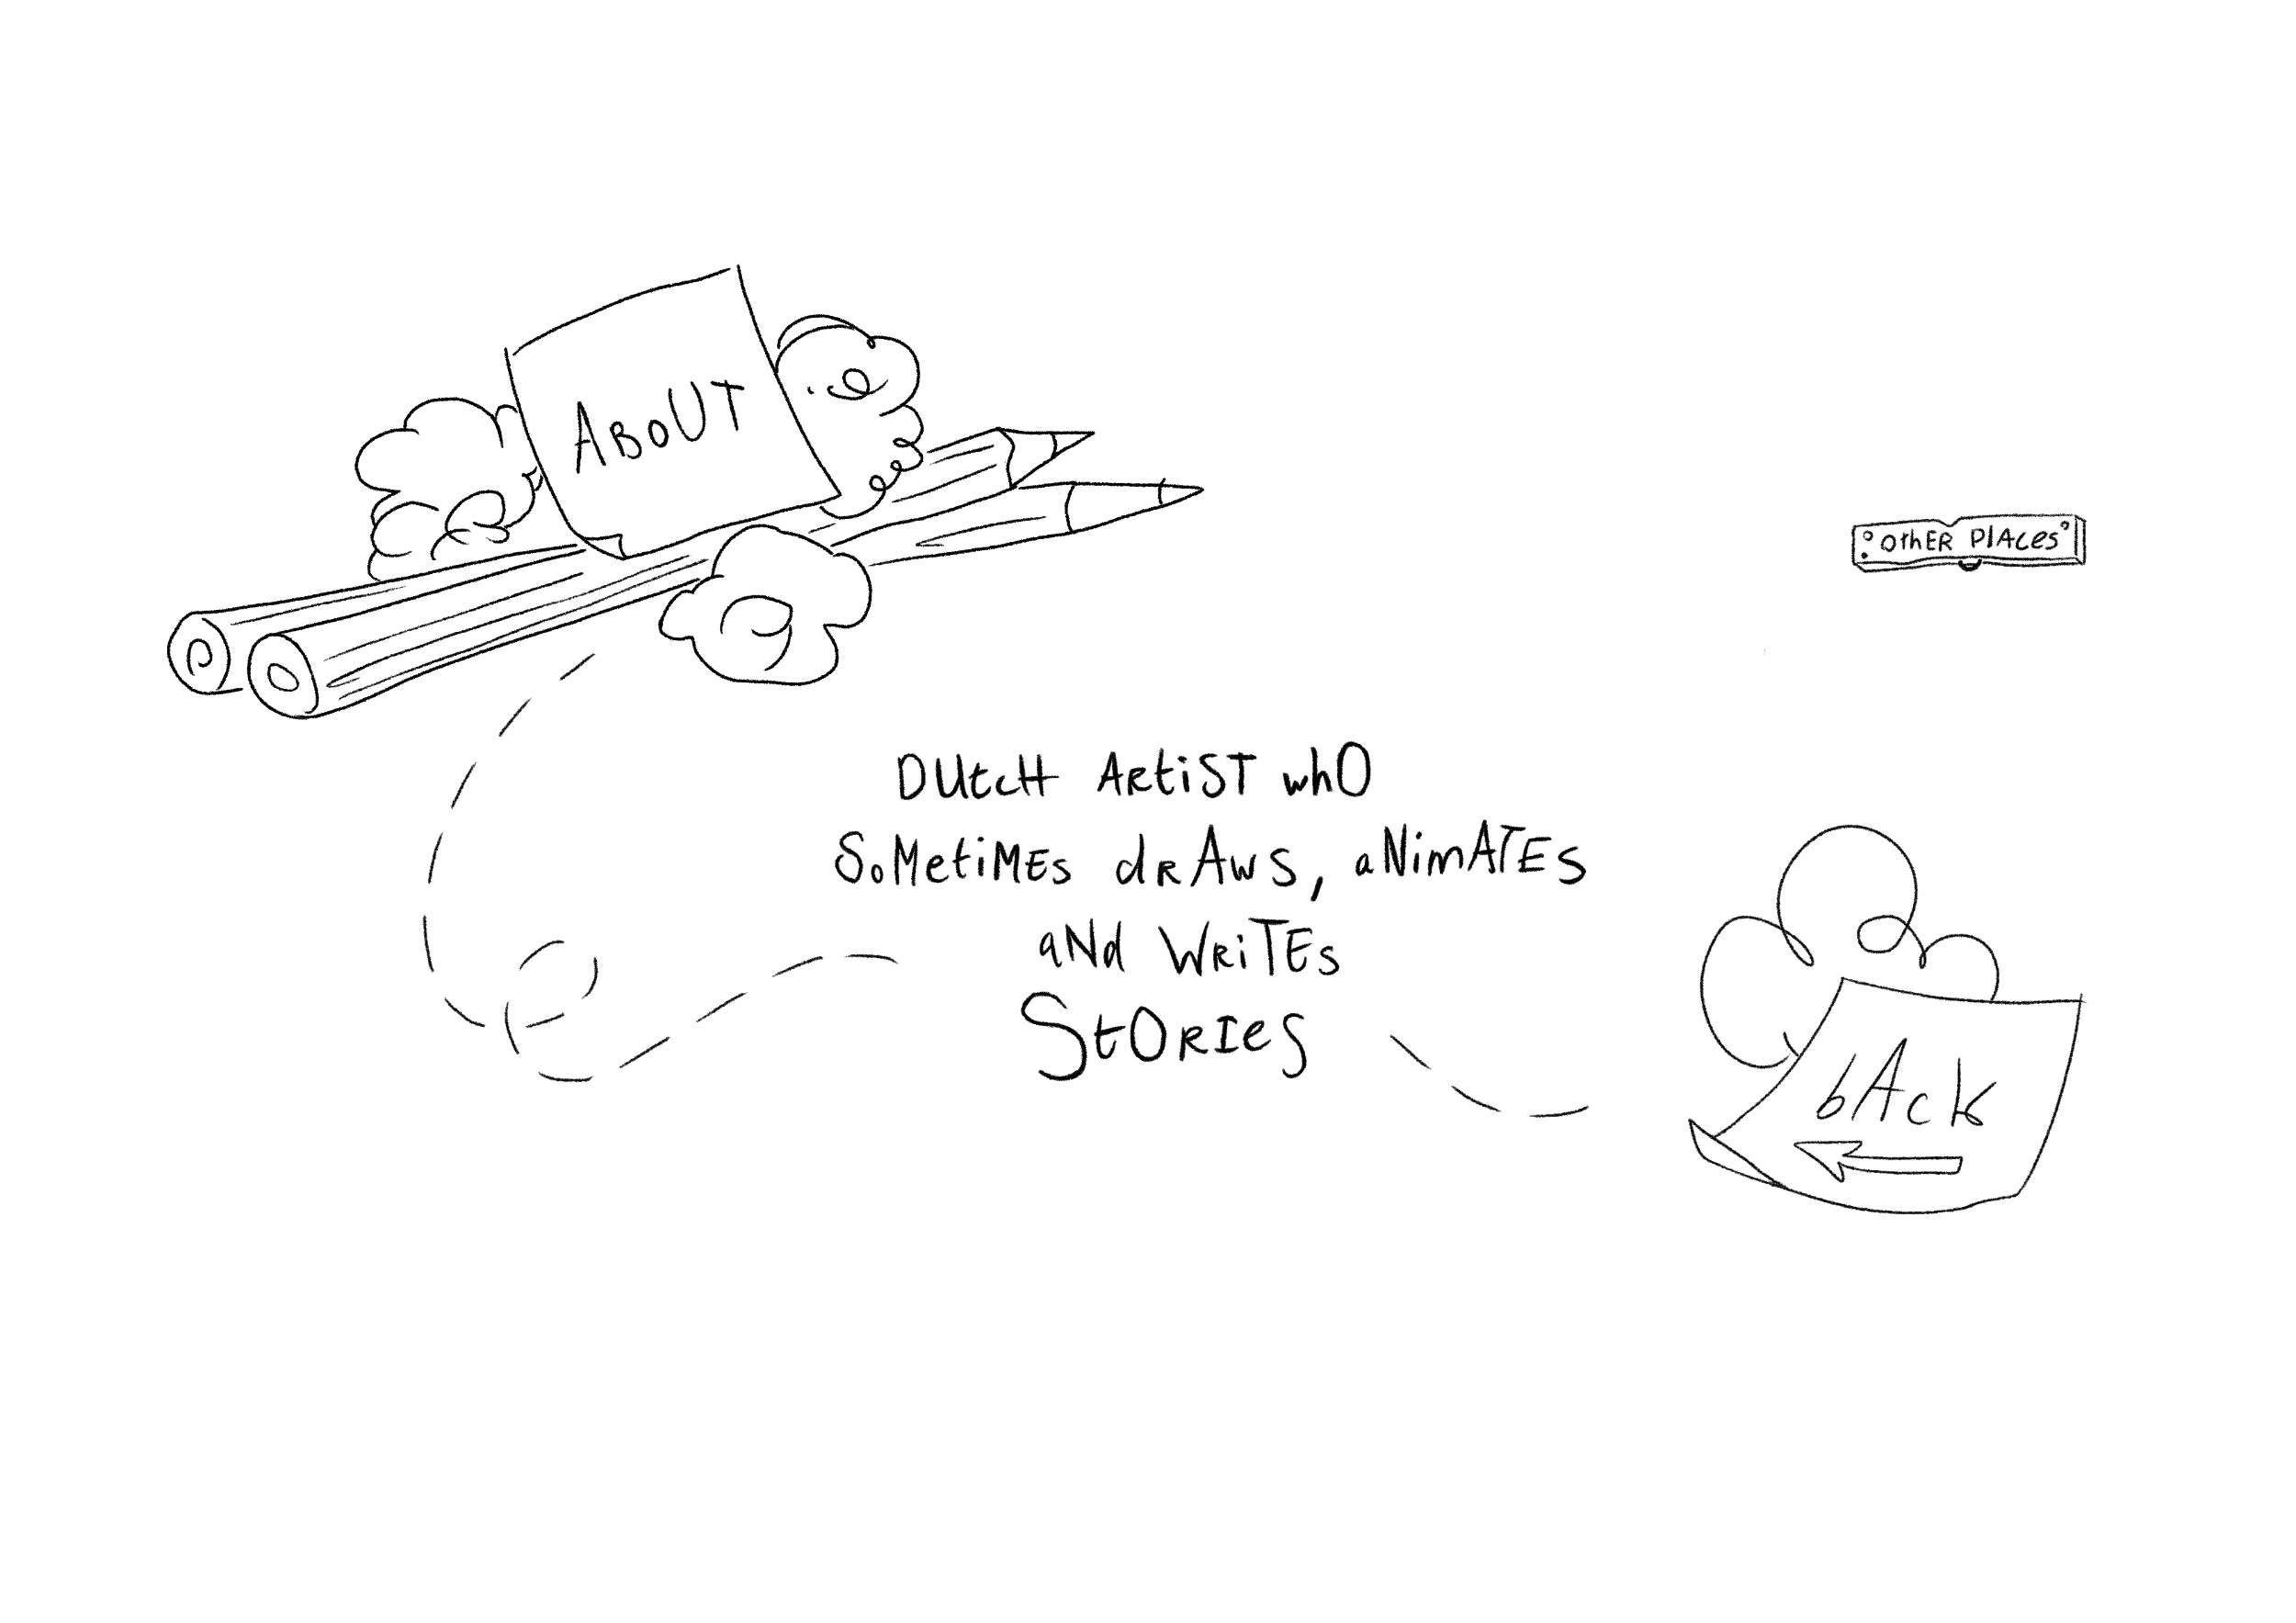 ABOUT
OthER PlACes
DUtcH ARtiST whO
SoMetiMEs dRAwS, aNimATEs
aNd WRiTEs
StORIeS
bAck